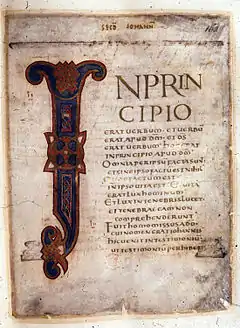 SECD IOHANN
IN PRIN
CIPIO
ERAT UERBUM ET UERBU
ERAT APUD DM ET DS
ERAT UERBUM HOC ERAT
IN PRINCIPIO APUD DM
OMNIA PER IPSU FACTA SUNT
ET SINE IPSO FACTUM EST NIHIL
FACTUM EST
IN IPSO UITA EST ET UITA
ERAT LUX HOMINUM
ET LUX IN TENEBRIS LUCET
ET TENEBRAE EAM NON
COMPREHENDERUNT
FUIT HOMO MISSUS A DO
CUI NOMEN ERAT IOHANNIS
HIC UENIT IN TESTIMONIU
UT TESTIMONIU PERHIBERET